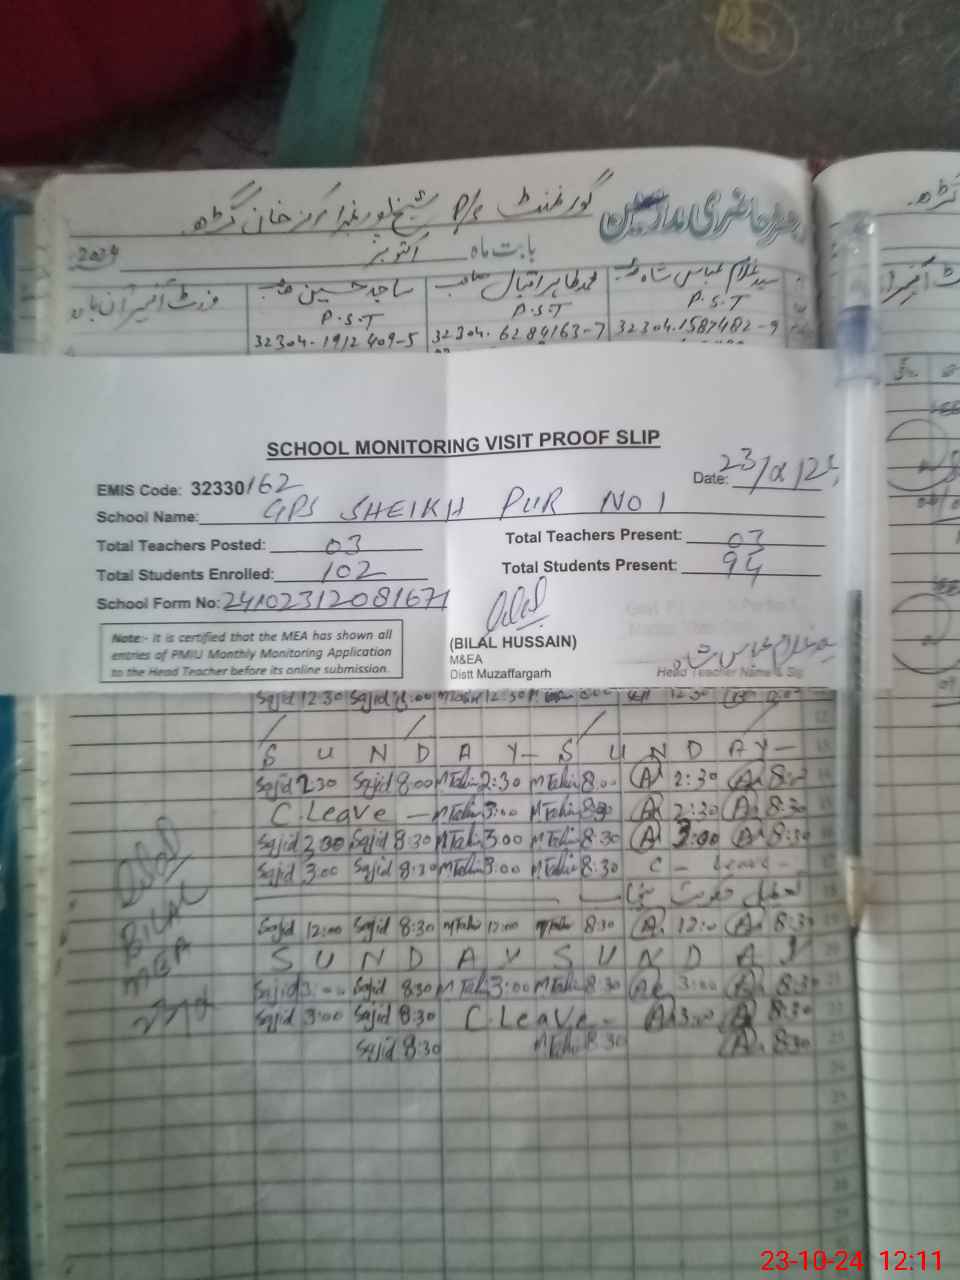 رجسٹر حاضری مدارسین گورنمنٹ P/S شیخ پور نمبر1 مرکز خان گڑھ
بابت ماہ اکتوبر 2024
سید غلام عباس شاہ محمد طاہر اقبال صاحب ساجد حسین
P.S.T P.S.T P.S.T
32304-1912409-5 32304-6284163-7 32304-1587482-9
SCHOOL MONITORING VISIT PROOF SLIP
EMIS Code: 32330162 Date: 23/10/24
School Name: GPS SHEIKH PUR NO 1
Total Teachers Posted: 03 Total Teachers Present: 03
Total Students Enrolled: 102 Total Students Present: 94
School Form No: 24102312081671
(BILAL HUSSAIN)
M&EA
Distt Muzaffargarh
Note:- it is certified that the MEA has shown all
entries of PMIU Monthly Monitoring Application
to the Head Teacher before its online submission.
غلام عباس شاہ
Head Teacher Name & Sig
Sajid 12:30 Sajid 8:00 MTahir 12:30
S U N D A Y - S U N D A Y -
Sajid 2:30 Sajid 8:00 MTahir 2:30 MTahir 8:00 A 2:30 A 8:00
C. Leave - MTahir 3:00 MTahir 8:30 A 2:30 A 8:30
Sajid 3:00 Sajid 8:30 MTahir 3:00 MTahir 8:30 A 3:00 A 8:30
Sajid 3:00 Sajid 8:30 MTahir 3:00 MTahir 8:30 C - Leave -
Sajid 12:00 Sajid 8:30 MTahir 12:00 MTahir 8:30 A 12:00 A 8:30
S U N D A Y S U N D A Y
Sajid 3:00 Sajid 8:30 MTahir 3:00 MTahir 8:30 A 3:00 A 8:30
Sajid 3:00 Sajid 8:30 C. Leave - A 3:00 A 8:30
Sajid 8:30 MTahir 8:30 A 8:30
BILAL
MEA
23-10-24 12:11